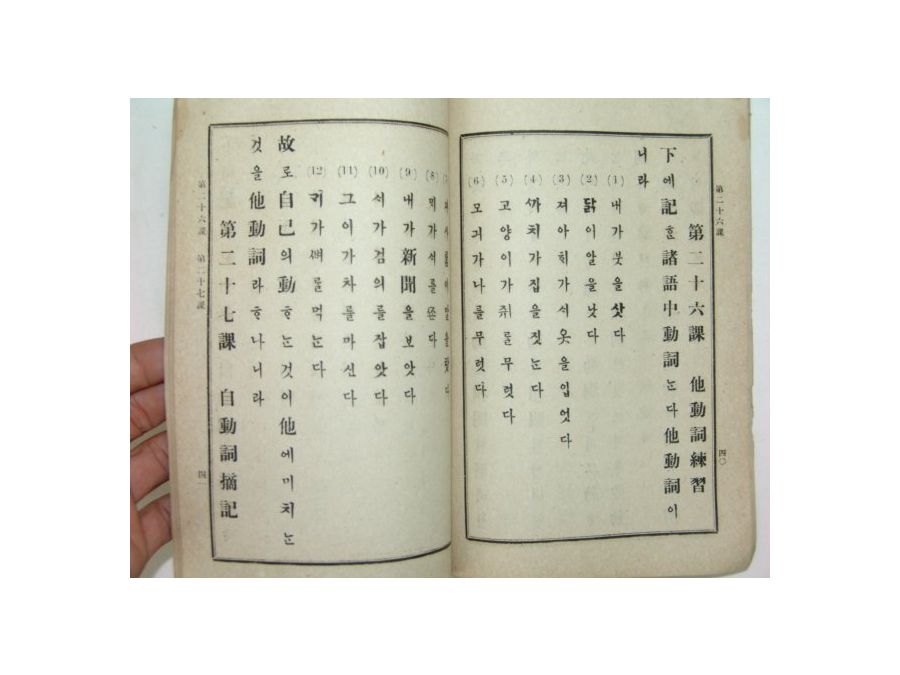 第二十六課
四〇
第二十六課 他動詞練習
下에記ᄒᆞᆫ諸語中動詞ᄂᆞᆫ다他動詞이
니라
(1) 내가붓을삿다
(2) 닭이알을낫다
(3) 져아희가ᄉᆡ옷을입엇다
(4) ᄭᅡ치가집을짓ᄂᆞᆫ다
(5) 고양이가쥐를무럿다
(6) 모긔가나를무럿다
(8)
(9) 내가新聞을보앗다
(10) ᄉᆡ가검의를잡앗다
(11) 그이가차를마신다
(12) ᄀᆡ가ᄲᅧ를먹ᄂᆞᆫ다
故로自己의動ᄒᆞᄂᆞᆫ것이他에미치ᄂᆞᆫ
것을他動詞라ᄒᆞ나니라
第二十七課 自動詞摘記
第二十六課 第二十七課
四一